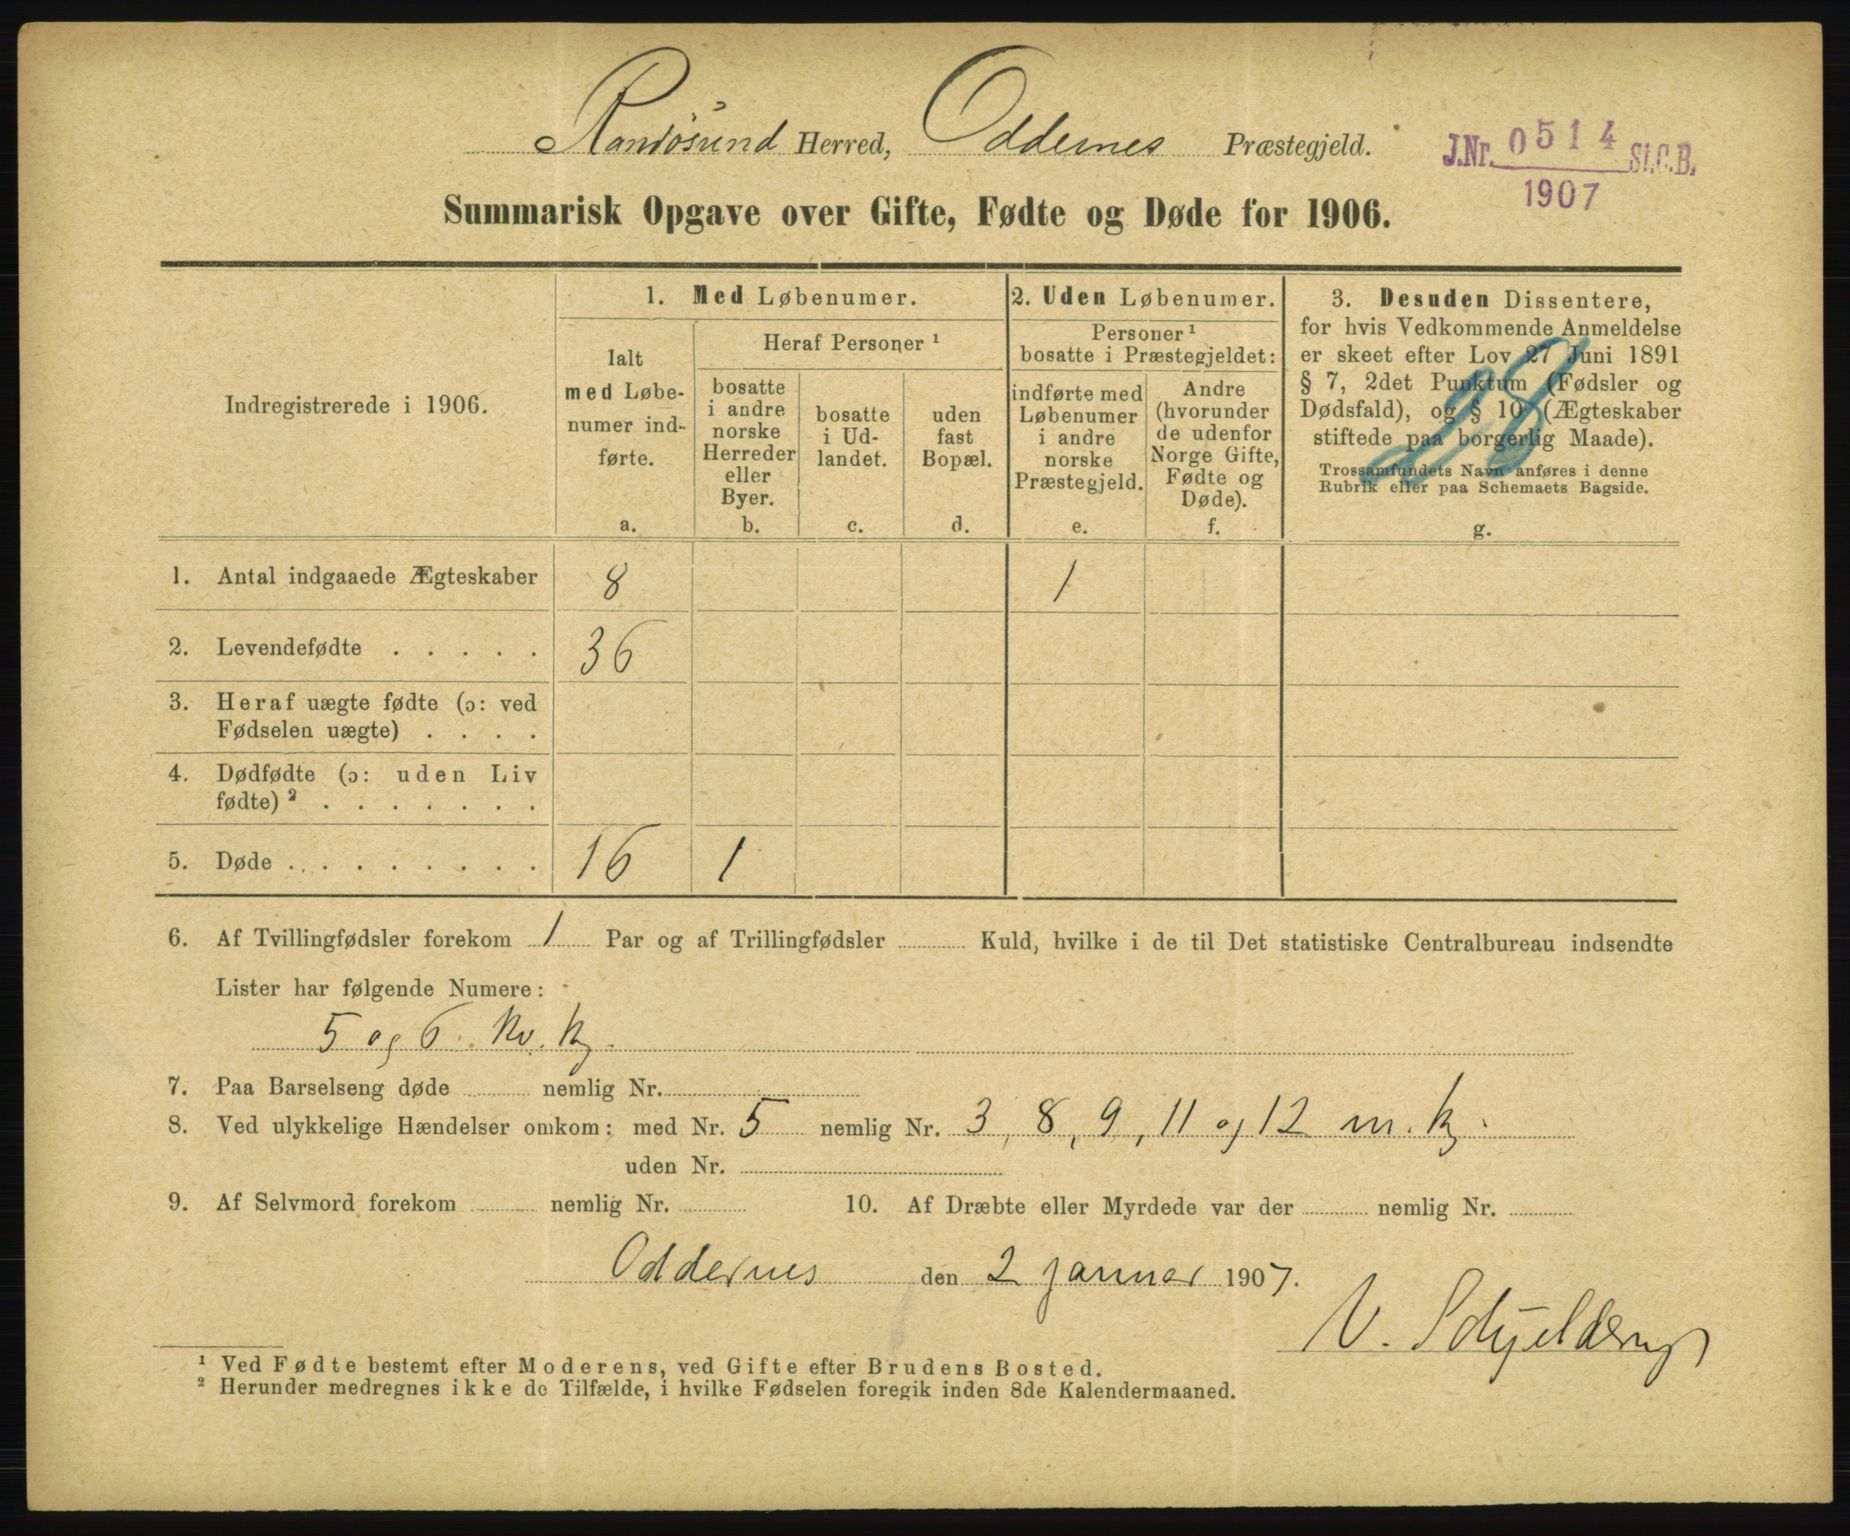 Randøsund Herred, Oddernes Præstegjeld.
J.Nr. 0514 St.C.B.
1907
Summarisk Opgave over Gifte, Fødte og Døde for 1906.
Indregistrerede i 1906.
1. Med Løbenumer.
Ialt
med Løbe-
numer ind-
førte.
a.
Heraf Personer ¹
bosatte
i andre
norske
Herreder
eller
Byer.
b.
bosatte
i Ud-
landet.
c.
uden
fast
Bopæl.
d.
2. Uden Løbenumer.
Personer ¹
bosatte i Præstegjeldet:
indførte med
Løbenumer
i andre
norske
Præstegjeld.
e.
Andre
(hvorunder
de udenfor
Norge Gifte,
Fødte og
Døde).
f.
3. Desuden Dissentere,
for hvis Vedkommende Anmeldelse
er skeet efter Lov 27 Juni 1891
§ 7, 2det Punktum (Fødsler og
Dødsfald), og § 10 (Ægteskaber
stiftede paa borgerlig Maade).
Trossamfundets Navn anføres i denne
Rubrik eller paa Schemaets Bagside.
g.
28
1. Antal indgaaede Ægteskaber 8 1
2. Levendefødte . . . . . 36
3. Heraf uægte fødte (ɔ: ved
Fødselen uægte) . . . .
4. Dødfødte (ɔ: uden Liv
fødte) ² . . . . . . .
5. Døde . . . . . . . . 16 1
6. Af Tvillingfødsler forekom 1 Par og af Trillingfødsler Kuld, hvilke i de til Det statistiske Centralbureau indsendte
Lister har følgende Numere:
5 og 6 Kv. Kj.
7. Paa Barselseng døde nemlig Nr.
8. Ved ulykkelige Hændelser omkom: med Nr. 5 nemlig Nr. 3, 8, 9, 11 og 12 m. Kj.
uden Nr.
9. Af Selvmord forekom nemlig Nr. 10. Af Dræbte eller Myrdede var der nemlig Nr.
Oddernes den 2 januar 1907.
V. Schjelderup
¹ Ved Fødte bestemt efter Moderens, ved Gifte efter Brudens Bosted.
² Herunder medregnes ikke de Tilfælde, i hvilke Fødselen foregik inden 8de Kalendermaaned.